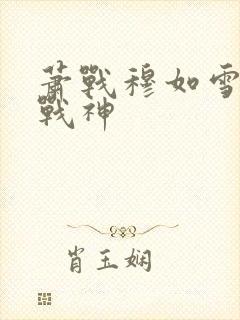 萧戰穆如雪
戰神
肖玉娴